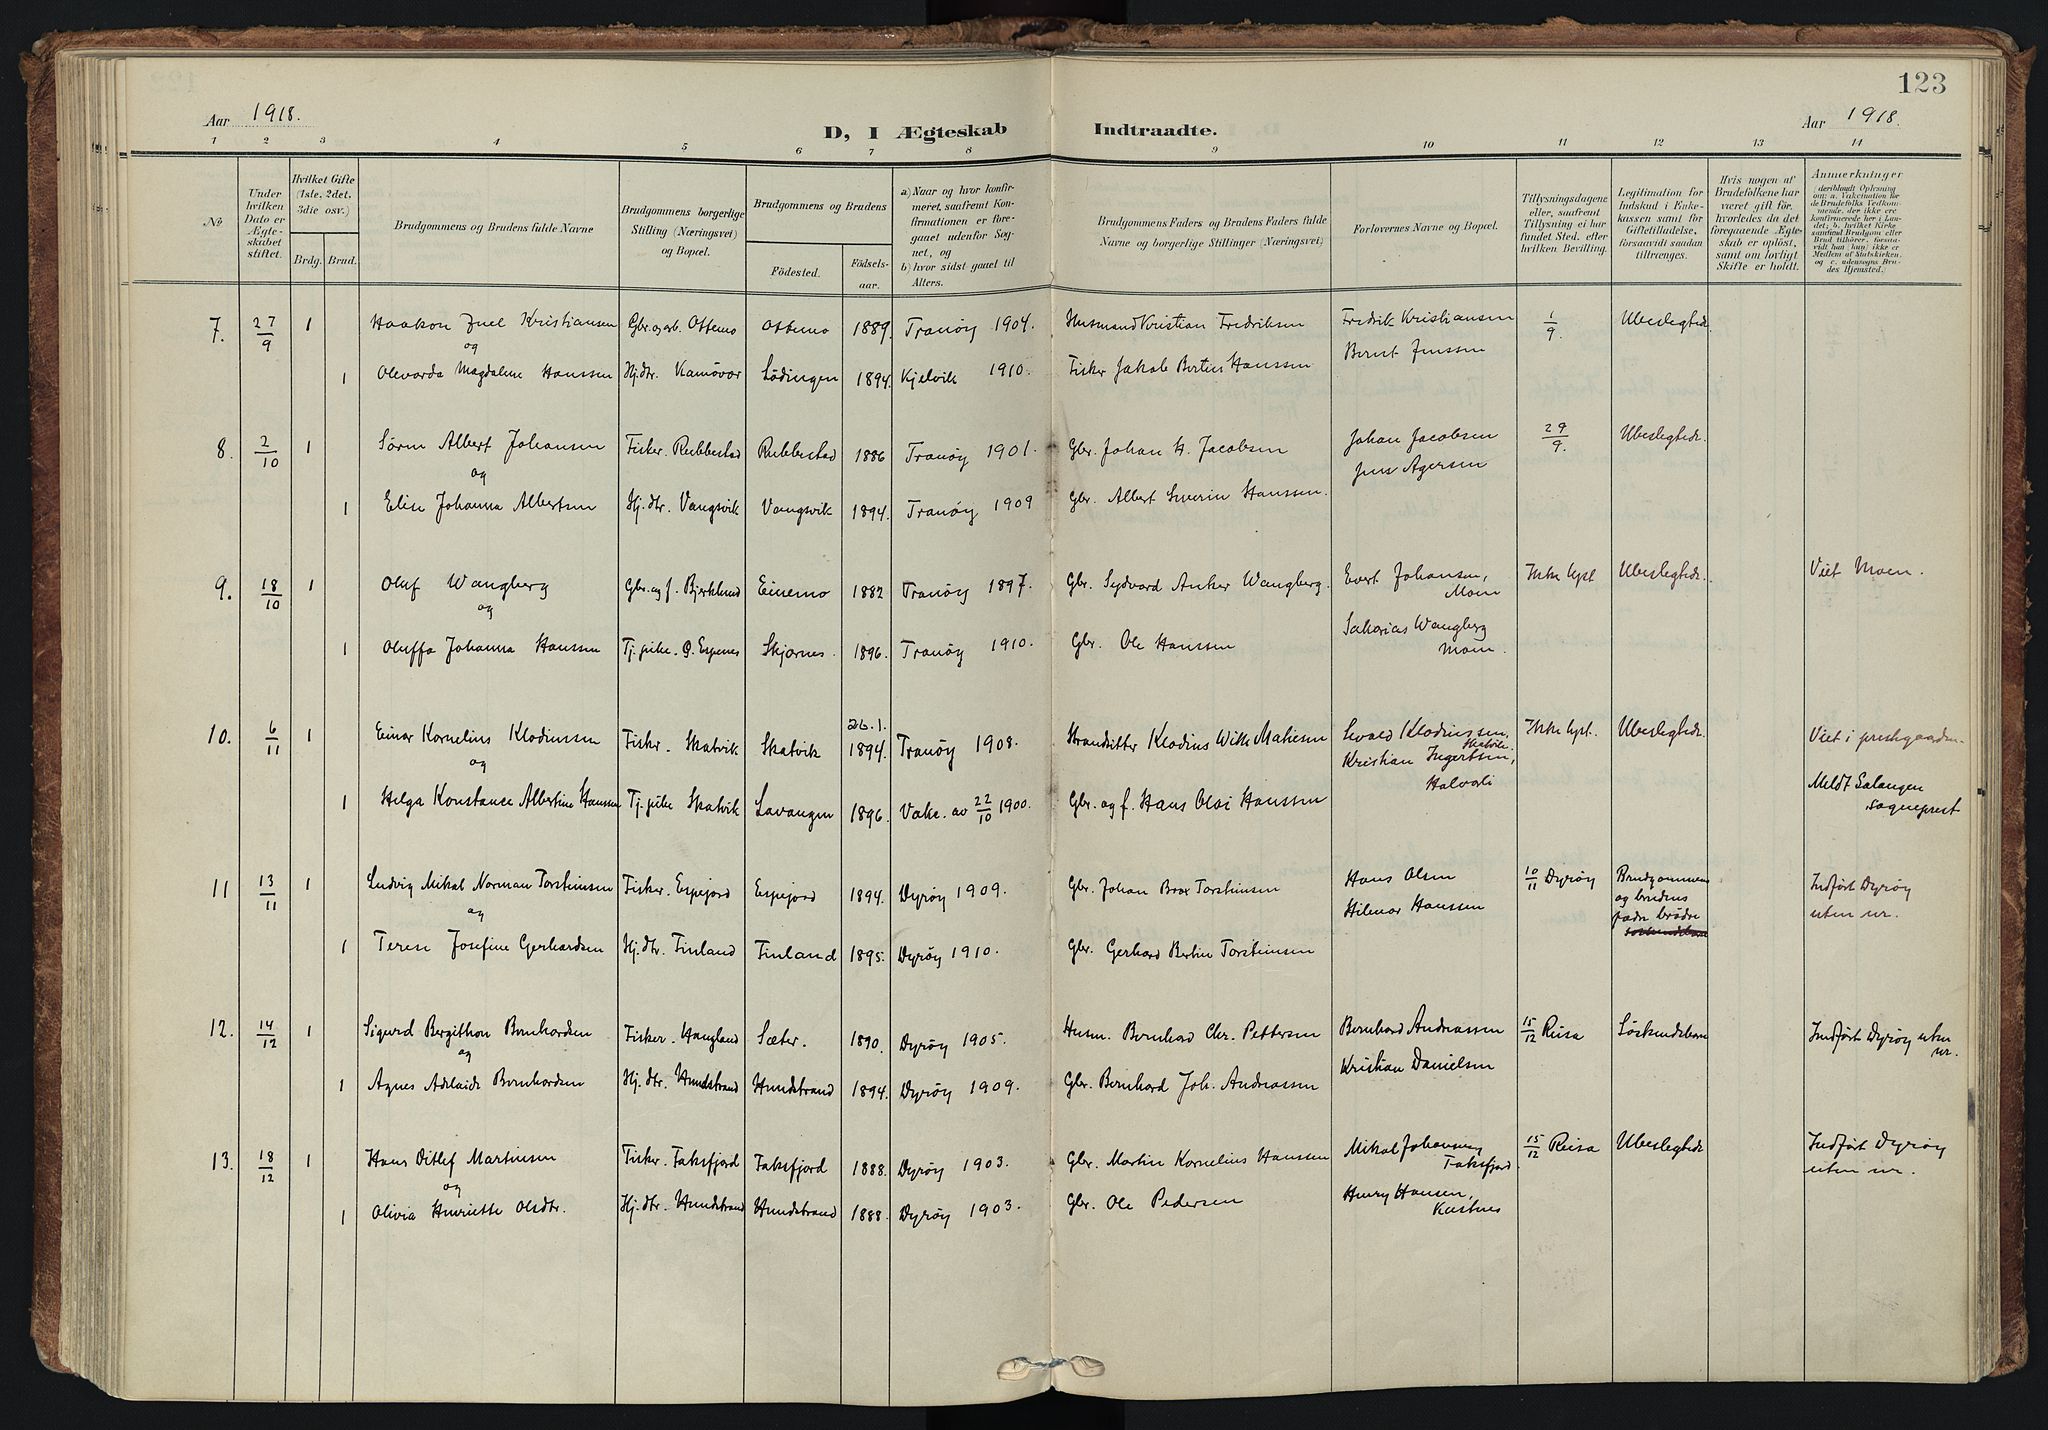 123
Aar 1918.
D, I Ægteskab Indtraadte.
Aar 1918.
1 2 3 4 5 6 7 8 9 10 11 12 13 14
No
Under hvilken Dato er Ægteskabet stiftet.
Hvilket Gifte (1ste, 2det, 3die osv.)
Brdg. Brud.
Brudgommens og Brudens fulde Navne
Brudgommens borgerlige Stilling (Næringsvei) og Bopæl.
Brudgommens og Brudens
Födested. Födselsaar.
a) Naar og hvor konfirmeret, saafremt Konfirmationen er foregaaet udenfor Sognet, og
b) hvor sidst gaaet til Alters.
Brudgommens Faders og Brudens Faders fulde Navne og borgerlige Stillinger (Næringsvei)
Forlovernes Navne og Bopæl.
Tillysningsdagene eller, saafremt Tillysning ei har fundet Sted, efter hvilken Bevilling.
Legitimation for Indskud i Enkekassen samt for Giftetilladelse, forsaavidt saadan tiltrænges.
Hvis nogen af Brudefolkene har været gift för, hvorledes da det foregaaende Ægteskab er oplöst, samt om lovligt Skifte er holdt.
Anmærkninger
(deriblandt Oplysning om: a. Vakcination for de Brudefolks Vedkommende, der ikke ere konfirmerede her i Landet; b. hvilket Kirkesamfund Brudgom eller Brud tilhører, forsaavidt han (hun) ikke er Medlem af Statskirken, og c. udensogns Brudes Hjemsted.)
7. 27/9 1 Haakon Juel Kristiansen Gbr. og arb. Ottemo Ottemo 1889. Tranöy 1904. Husmand Kristian Fredriksen Fredrik Kristiansen 1/9. Ubeslegtede.
og Bernt Jenssen
1 Olevarda Magdalene Hanssen Hj.dtr. Kamövær Lödingen 1894. Kjelvik 1910. Fisker Jakob Bertius Hanssen
8. 2/10 1 Sörm Albert Johansen Fisker. Rubbestad Rubbestad 1886 Tranöy 1901. Gbr. Johan H. Jacobsen Johan Jacobsen 29/9. Ubeslegtede.
og Jens Agersen
1 Elise Johanna Albertsen Hj.dtr. Vangsvik Vangsvik 1894. Tranöy 1909 Gbr. Albert Severin Hanssen.
9. 18/10 1 Oluf Wangberg Gbr. og f. Bjerklund Einemo 1882 Tranöy 1897. Gbr. Sydvard Anker Wangberg. Evert Johansen, Moen Ikke lyst Ubeslegtede. Viet Moen.
og Sakarias Wangberg Moen.
1 Oluffa Johanna Hanssen Tj.pike. Espenes Skjærnes. 1896. Tranöy 1910. Gbr. Ole Hanssen
10. 6/11 1 Einar Kornelius Klodiussen Fisker. Skatvik Skatvik 26.1. 1894. Tranöy 1908. Strandsitter Klodius Wilk Matiesen Sevald Klodiussen, Skatvik. Ikke lyst. Ubeslegtede. Viet i prestgaarden.
og Kristian Ingertsen, Halvarli
1 Helga Konstance Albertine Hanssen Tj.pike Skatvik Lavangen 1896. Vakc. av 22/10 1900. Gbr. og f. Hans Olai Hanssen Meldt Salangen sogneprest
11 13/11 1 Ludvig Mikal Norman Torsteinsen Fisker. Espejord Espejord 1894. Dyröy 1909. Gbr. Johan Brox Torsteinsen Hans Olsen 10/11 Dyröy Brudgommens og brudens fædre brödre Indført Dyröy uten nr.
og Hilmar Hanssen
1 Terese Josefine Gerhardsen Hj.dtr. Finland Finland 1895. Dyröy 1910. Gbr. Gerhard Bertin Torsteinsen
12. 14/12 1 Sigurd Bergithon Bernhardsen Fisker. Haugland Sæter. 1890. Dyröy 1905. Husm. Bernhard Chr. Pettersen Bernhard Andreassen 15/12 Reisa Söskendebarn Indført Dyröy uten nr.
og Kristian Danielsen
1 Agnes Adelaide Bernhardsen Hj.dtr. Hundstrand Hundstrand 1894. Dyröy 1909. Gbr. Bernhard Joh. Andreassen
13. 18/12 1 Hans Ditlef Martinsen Fisker. Faksfjord Faksfjord 1888. Dyröy 1903. Gbr. Martin Kornelius Hanssen Mikal Johansen, Faksfjord 15/12 Reisa Ubeslegtede Indført Dyröy uten nr.
og Henry Hansen, Kastnes
1 Olivia Henriette Olsdtr. Hj.dtr. Hundstrand Hundstrand 1888. Dyröy 1903. Gbr. Ole Pedersen